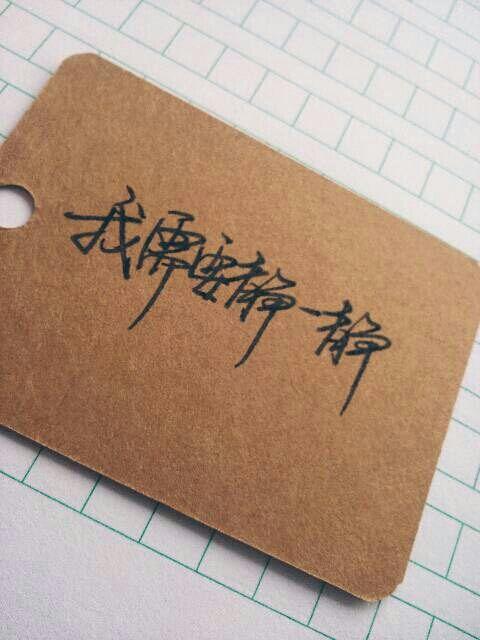 我需要静一静